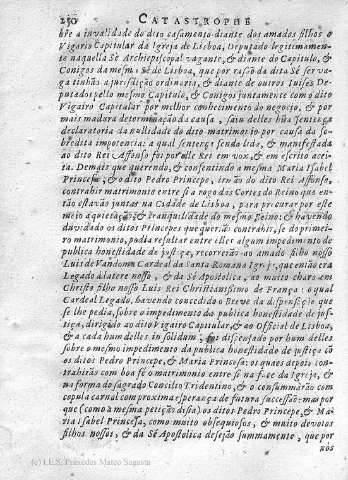 250 CATASTROPHE
bre a invalidade do dito casamento diante dos amados filhos o
Vigario Capitular da Igreja de Lisboa, Deputado legitimamen-
te naquella Sè Archiepiscopal vagante, & diante do Capitulo, &
Conigos da mesma Sè de Lisboa, que por rasão da dita Sè ser va-
ga tinhão a jurisdição ordinaria, & diante de outros Juises De-
putados pello mesmo Capitulo, & Conigos juntamente com o dito
Vigairo Capitular por melhor conhecimento do negocio, & por
mais madura determinação da causa, saiu delles hũa sentença
declaratoria da nullidade do dito matrimonio por causa da so-
bredita impotencia: a qual sentença sendo lida, & manifestada
ao dito Rei Affonso foi por elle Rei em vox, & em escrito acei-
ta. Demais que querendo, & consentindo a mesma Maria Isabel
Princepe, & o dito Pedro Principe, irmão do dito Rei Affonso,
contrahir matrimonio entre si a rogo das Cortes do Reino que en-
tão estavão juntas na Cidade de Lisboa, para procurar por este
meio a quietação, & tranquilidade do mesmo Reino: & havendo
duvidado os ditos Princepes que querião contrahir, se do primei-
ro matrimonio, podia resultar entre elles algum impedimento de
publica honestidade de justiça, recorrerão ao amado filho nosso
Luis de Vandoma Cardeal da Santa Romana Igreja, que então era
Legado à latere nosso, & da Sè Apostolica, ao muito charo em
Christo filho nosso Luis Rei Christianissimo de França: o qual
Cardeal Legado, havendo concedido o Breve da dispensação que
se lhe pedia, sobre o impedimento da publica honestidade de jus-
tiça, dirigido ao dito Vigairo Capitular, & ao Official de Lisboa,
& a cada hum delles in solidum, foi dispensado por hum delles
sobre o mesmo impedimento da publica honestidade de justiça cõ
os ditos Pedro Princepe, & Maria Princesa: os quaes depois con-
trahirão com boa fè o matrimonio entre si na face da Igreja, &
na forma do sagrado Concilio Tridentino, & o consummárão com
copula carnal com proxima esperança de futura successão: mas por
que (como a mesma petição disia) os ditos Pedro Princepe, & Ma-
ria Isabel Princesa, como muito obsequiosos, & muito devotos
filhos nossos, & da Sè Apostolica desejão summamente, que por
nòs
(c) I.E.S. Práxedes Mateo Sagasta